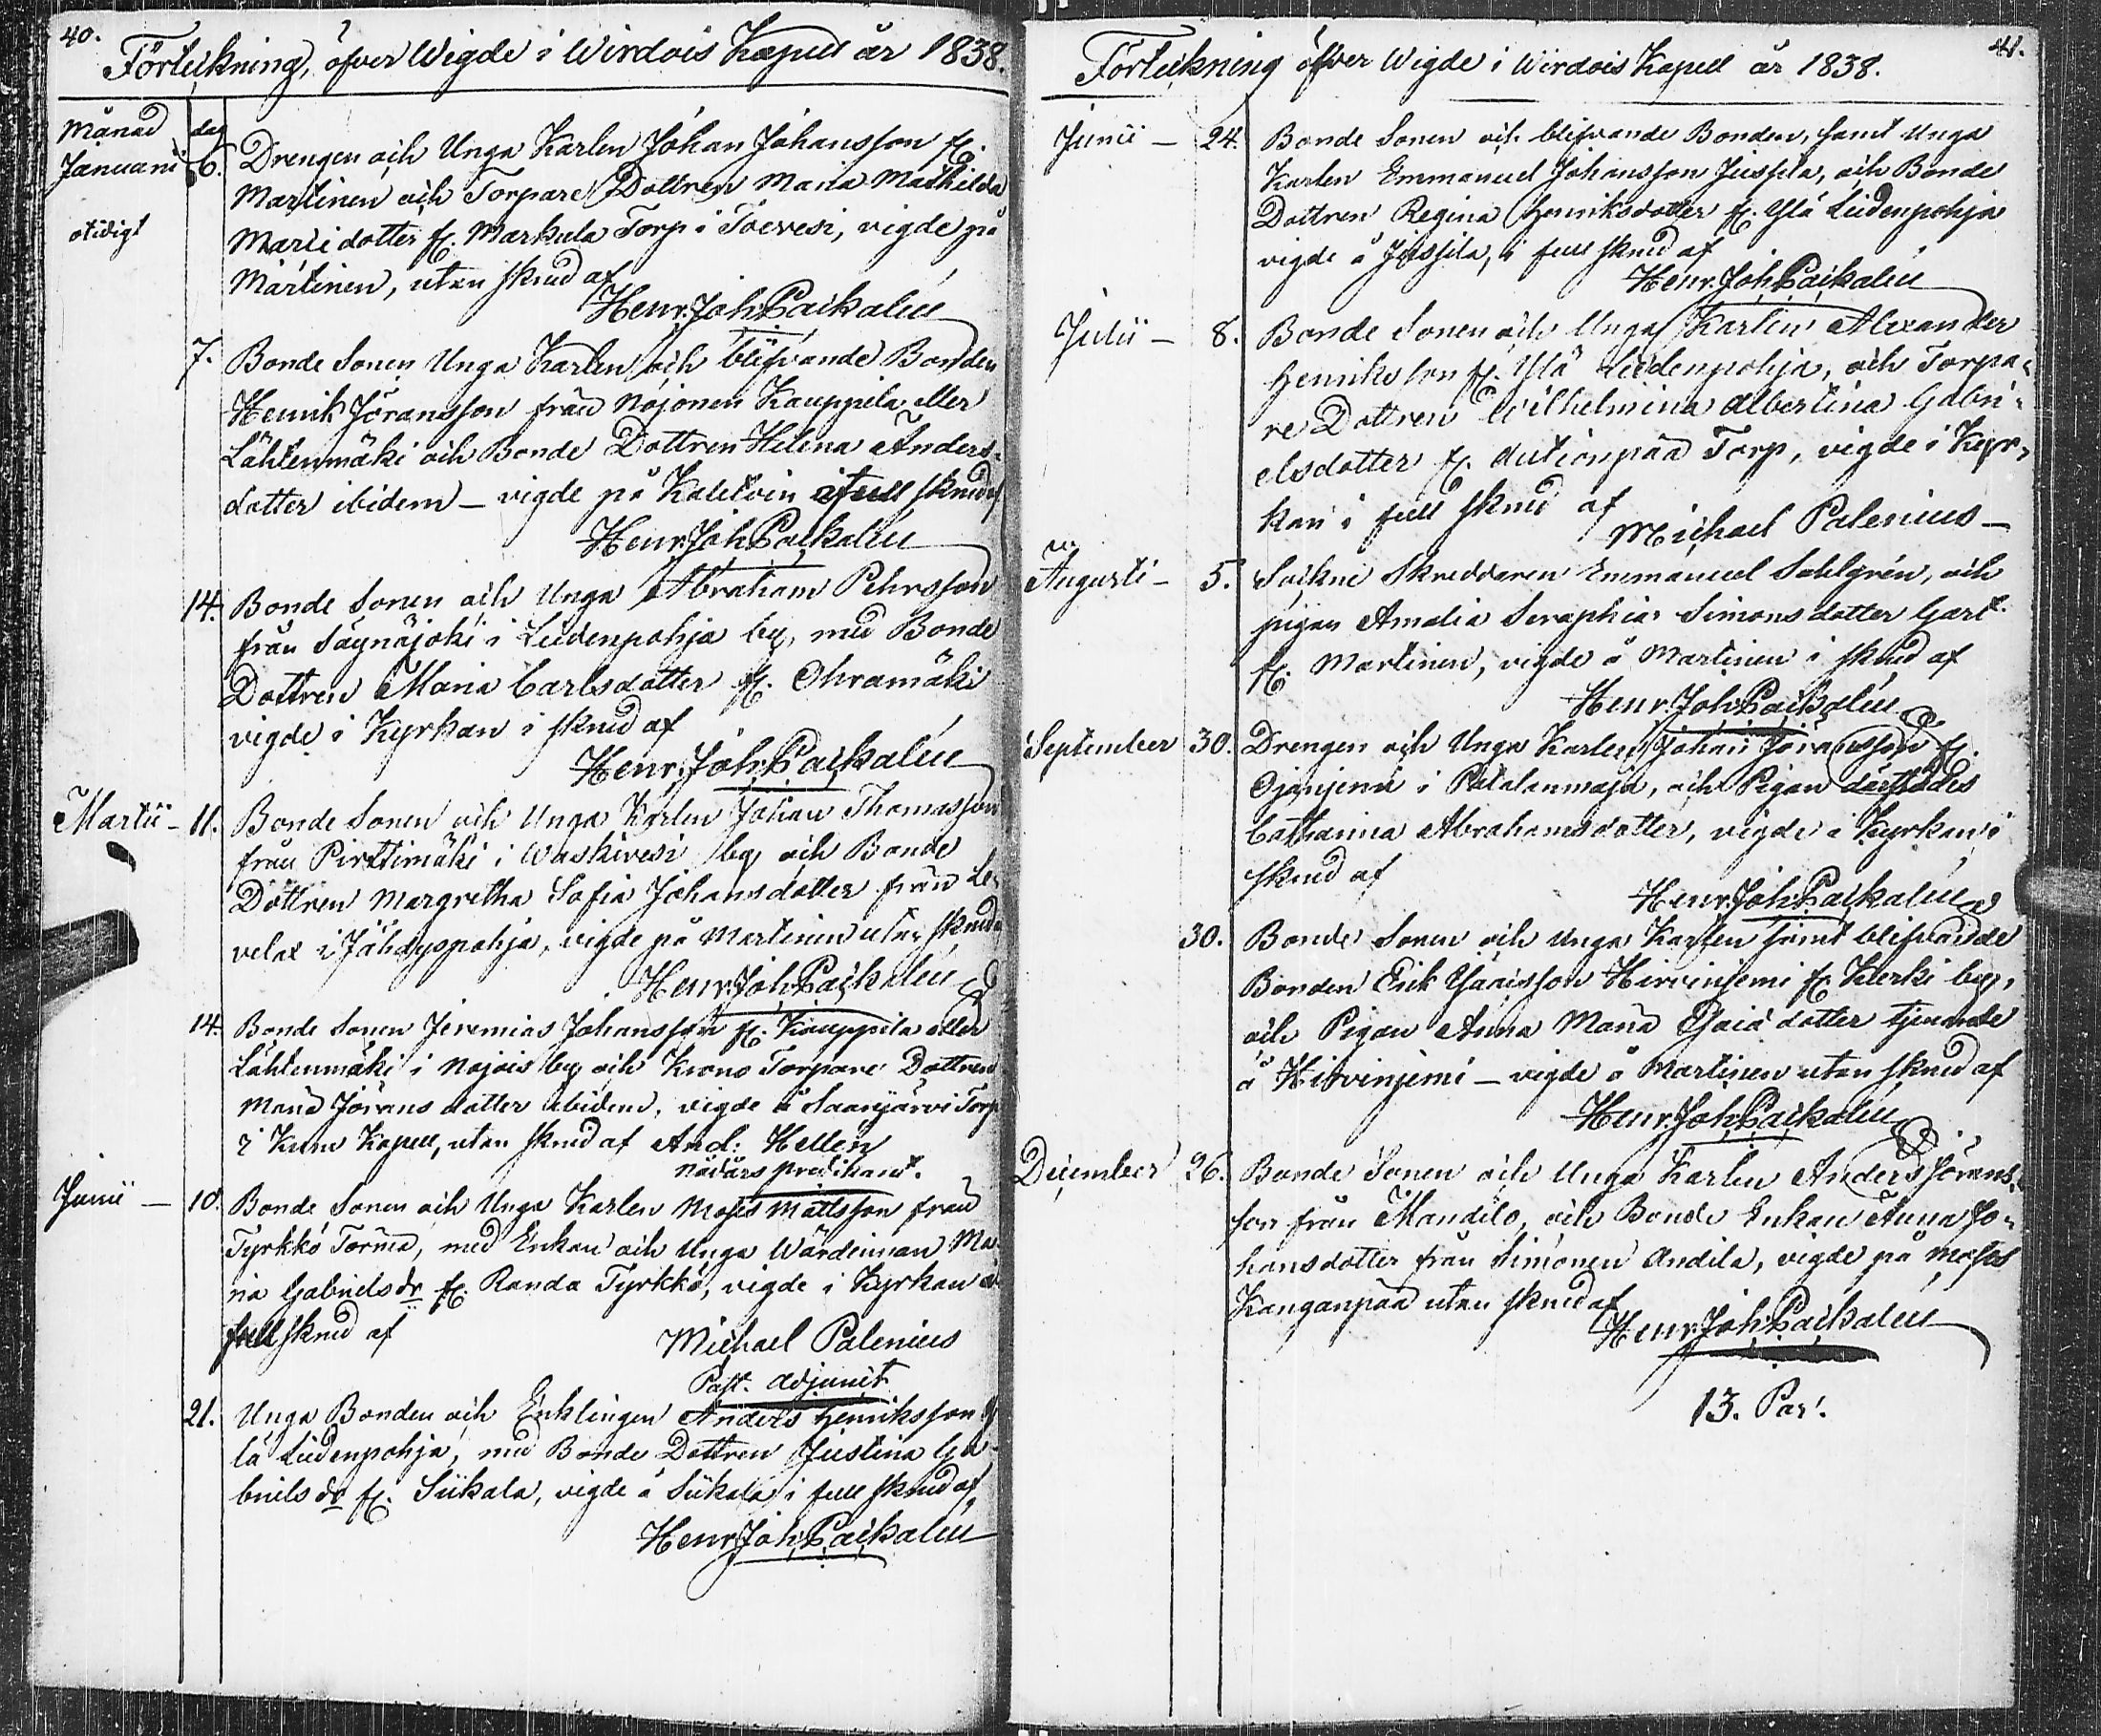 40.
Förteckning, öfver Wigde i Wirdois Kapell år 1838.
Månad dag
Januarii 6. Drengen och Unga Karlen Johan Johansson fr.
Martinen och Torpare Dottren Maria Mathilda
otidigt
Mattsdotter fr. Markula Torp i Toivesi, vigde på
Martinen, utan skrud af
Henr. Joh. Paikalén
7. Bonde Sonen Unga Karlen och blifvande Bonden
Henrik Jöransson från Nojonen Kauppila eller
Lähtenmäki och Bonde Dottren Helena Anders-
dotter ibidem – vigde på i full skrud af
Henr. Joh. Paikalén
14. Bonde Sonen och Unga Abraham Pehrsson
från Säynäjoki i Liedenpohja by, med Bonde
Dottren Maria Carlsdotter fr. Ohramäki
vigde i Kyrkan i skrud af
Henr. Joh. Paikalén
Martii – 11. Bonde Sonen och Unga Karlen Johan Thomasson
från Pirttimäki i Waskivesi by och Bonde
Dottren Margretha Sofia Johansdotter från Le-
velax i Jähdyspohja, vigde på Martinen utan skrud
Henr. Joh. Paikalén
14. Bonde Sonen Jeremias Johansson fr. Kauppila eller
Lähtenmäki i Nojois by och Krono Torpare Dottren
Maria Jörans dotter ibidem, vigde å Saarijärvi Torp
i Kuru Kapell, utan skrud af And: Hellén
nådårs predikant.
Junii – 10. Bonde Sonen och Unga Karlen Moses Mattsson från
Tyrkkö Törmä, med Enkan och Unga Wärdinnan Ma-
ria Gabriels dr fr. Randa Tyrkkö, vigde i Kyrkan i
full skrud af
Michael Palenius
Past. adjunct
21. Unga Bonden och Enklingen Anders Henriksson Y-
lä Liedenpohja, med Bonde Dottren Justina Ga-
briels dr fr. Siikala, vigde å Siikala i full skrud af
Henr. Joh. Paikalén
41.
Förteckning öfver Wigde i Wirdois Kapell år 1838.
Junii – 24. Bonde Sonen och blifvande Bonden, samt Unga
Karlen Emmanuel Johansson Jussila, och Bonde
Dottren Regina Henriksdotter fr. Ylä Liedenpohja
vigde å Jussila, i full skrud af
Henr. Joh. Paikalén
Julii – 8. Bonde Sonen och Unga Karlen Alexander
Henriksson fr. Ylä Liedenpohja, och Torpa-
re Dottren Wilhelmina Albertina Gabri-
elsdotter fr. Autionpää Torp, vigde i Kyr-
kan i full skrud af
Michael Palenius –
Augusti – 5. Sockne Skreddaren Emmanuel Sahlgrén, och
pigan Amalia Seraphia Simons dotter
fr. Martinen, vigde å Martinen i skrud af
Henr. Joh. Paikalén
September 30. Drengen och Unga Karlen Johan Jöransson fr.
Ojanjemi i Patalanmaja, och Pigan därstädes
Catharina Abrahamsdotter, vigde i Kyrkan i
skrud af
Henr. Joh. Paikalén
30. Bonde Sonen och Unga Karlen samt blifvande
Bonden Erik Hirvinjemi fr. Kierki by,
och Pigan Anna Maria dotter tjenande
å Hirvinjemi – vigde å Martinen utan skrud af
Henr. Joh. Paikalén
December 26. Bonde Sonen och Unga Karlen Anders Jörans-
son från Mandilo, och Bonde Enkan Anna Jo-
hansdotter från Simonen Andila, vigde på Moses
Kanganpää utan skrud af
Henr. Joh. Paikalén
13. Par.